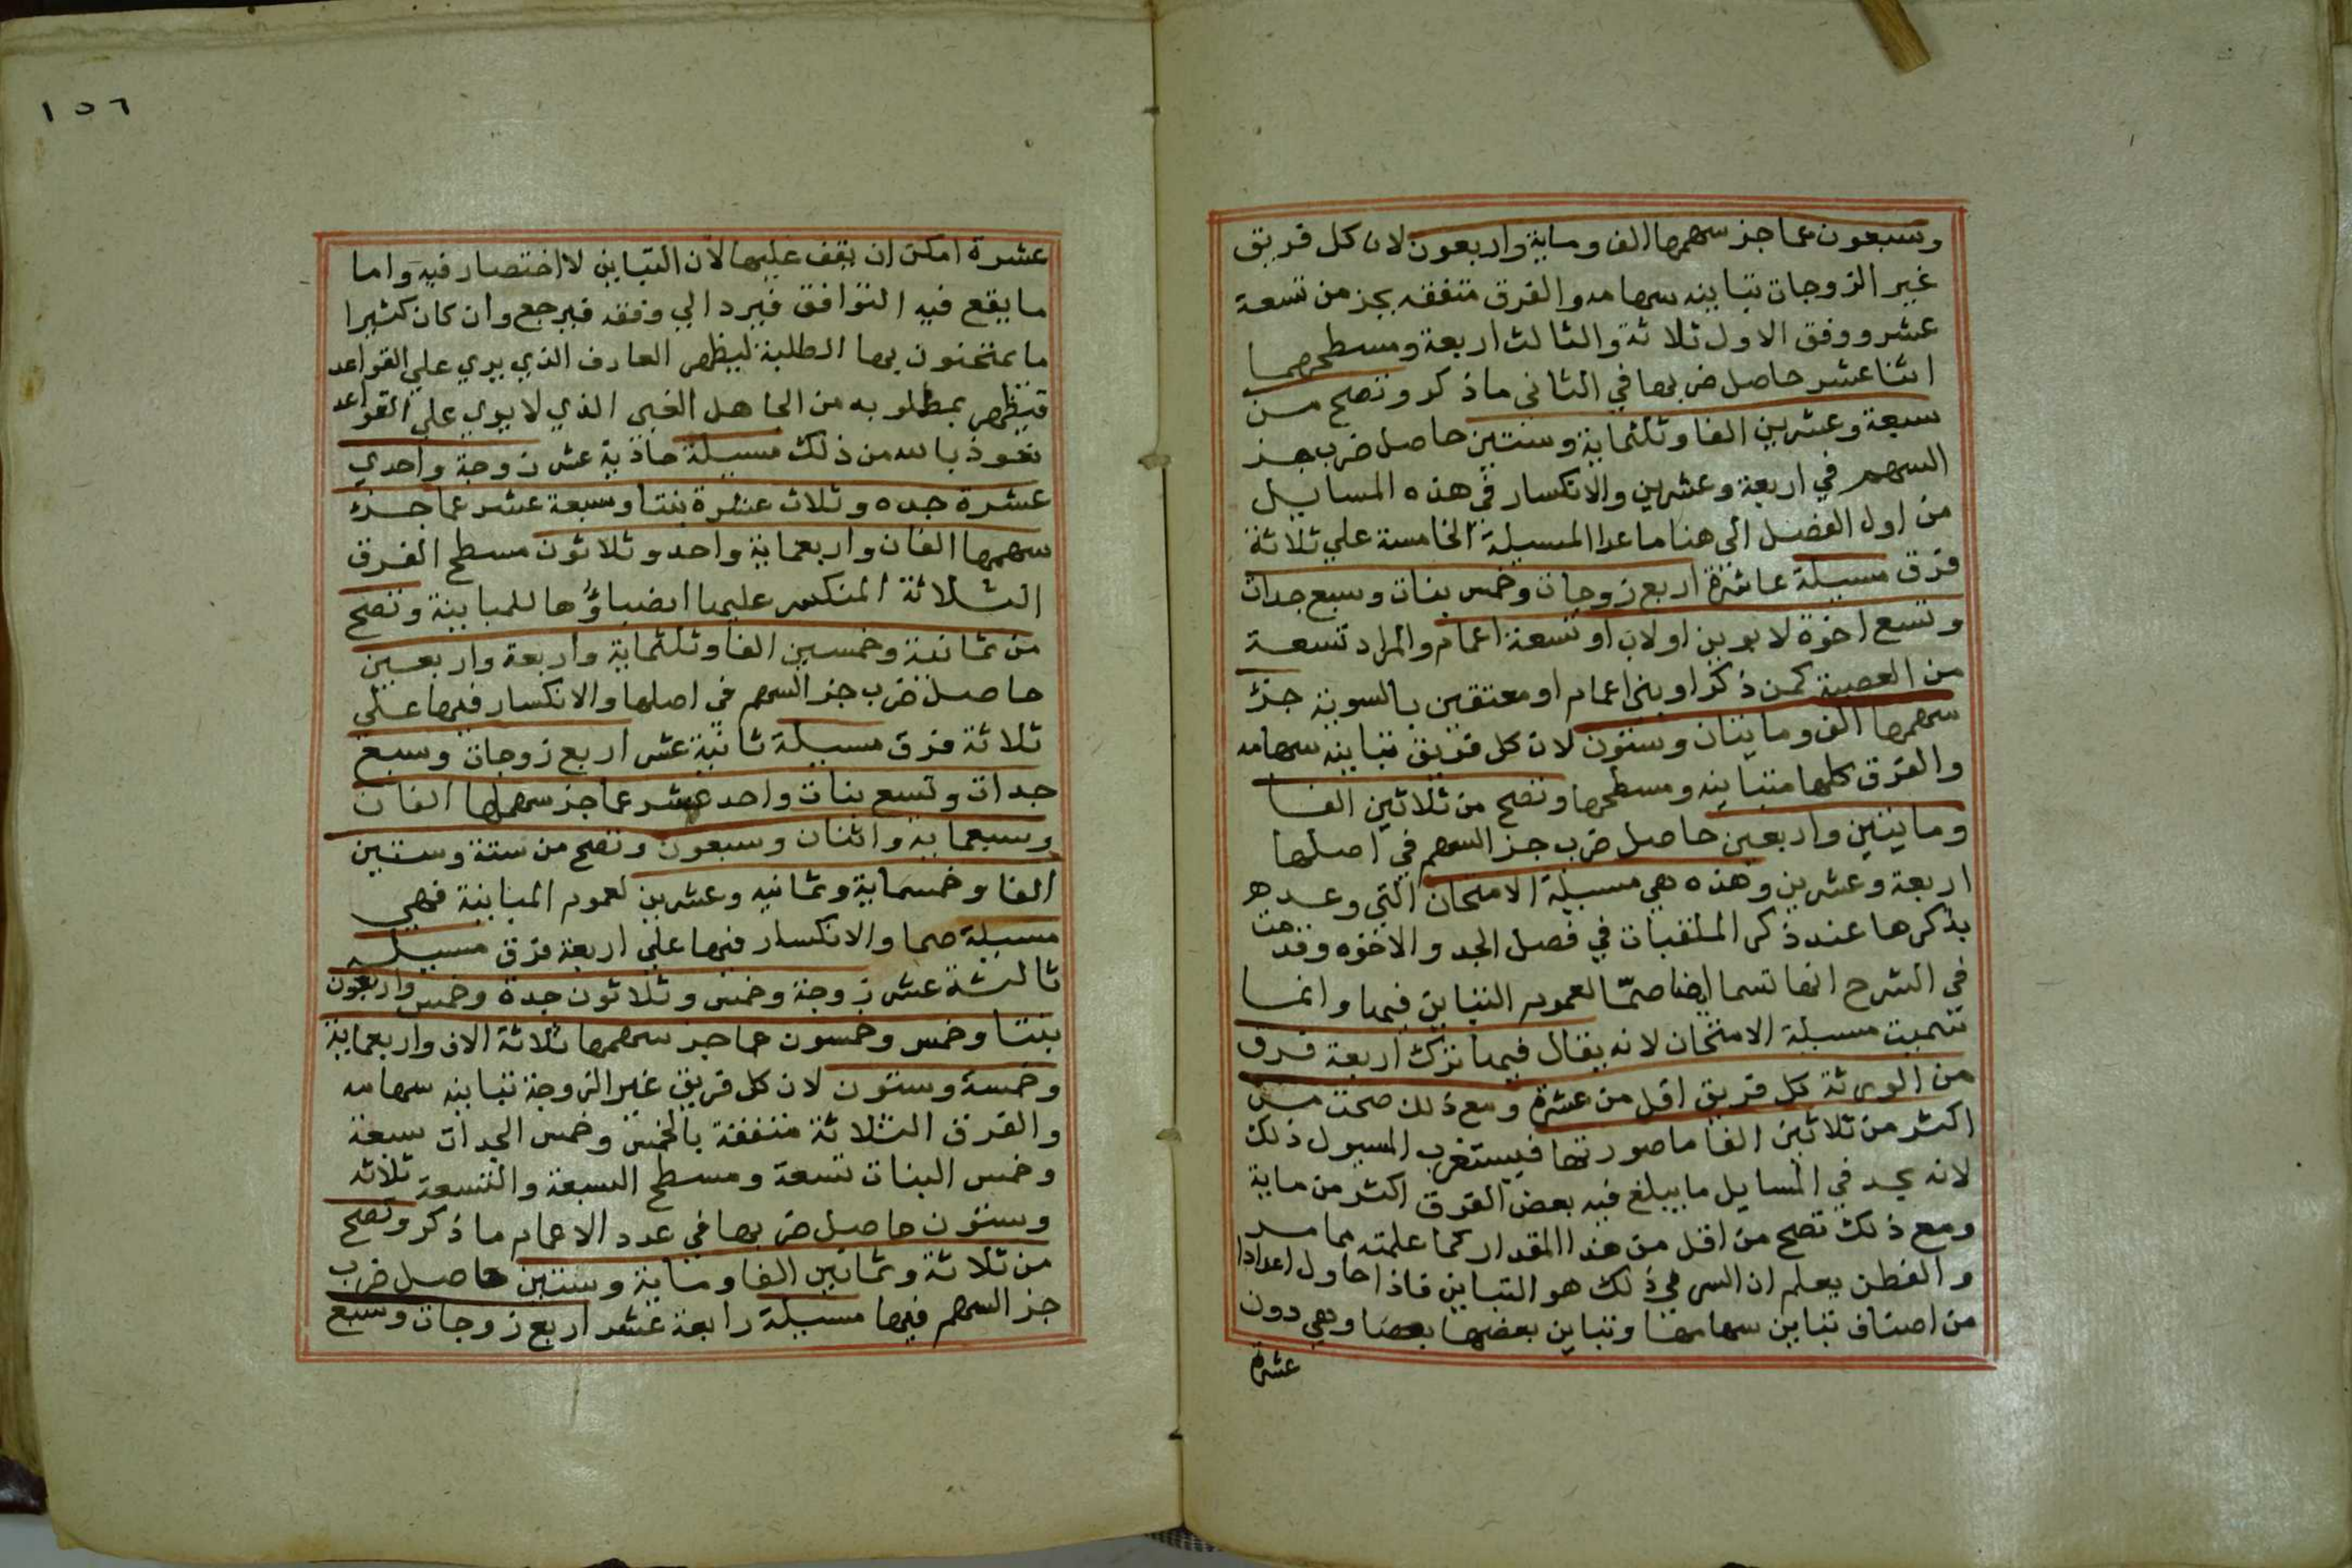 وسبعون عما جز سهمها الف وماية واربعون لان كل فريق
غير الزوجات تباينه سهامه والفرق متفقه بجز من تسعة
عشر ووفق الاول ثلاثة والثالث اربعة ومسطحهما
اثنا عشر حاصل ضربها في الثانى ماذكر وتصح من
سبعة وعشرين الفا وثلثماية وستين حاصل ضرب جز
السهم في اربعة وعشرين والانكسار في هذه المسايل
من اول الفصل الي هنا ماعدا المسيلة الخامسة علي ثلاثة
فرق مسيلة عاشرة اربع زوجات وخمس بنات وسبع جدات
وتسع اخوة لابوين او لاب او تسعة اعمام والمراد تسعة
من العصبة كمن ذكر او بني اعمام او معتقين بالسوية جزء
سهمها الف وماينان وستون لان كل فريق تباينه سهامه
والفرق كلها متباينه ومسطحها وتصح من ثلاثين الفا
وماينين واربعين حاصل ضرب جز السهم في اصلها
اربعة وعشرين وهذه هي مسيلة الامتحان التي وعده
بذكرها عند ذكر الملقبات في فصل الجد والاخوه وقدمت
في الشرح انها تسما ايضا صمّا لعموم التباين فيها وانما
سميت مسيلة الامتحان لانه يقال فيها ترك اربعة فرق
من الورثة كل فريق اقل من عشرة ومع ذلك صحت من
اكثر من ثلاثين الفا ماصورتها فيستغرب المسيول ذلك
لانه يجد في المسايل مايبلغ فيه بعض الفرق اكثر من ماية
ومع ذلك تصح من اقل من هذا المقدار كما علمته مما مر
والفطن يعلم ان السر في ذلك هو التباين فاذا حاول اعدادا
من اصناف تباين سهامها وتباين بعضها بعضا وهي دون
عشرة
١٥٦
عشرة امكن ان يقف عليها لان التباين لا اختصار فيه واما
مايقع فيه التوافق فيرد الي وفقه فيرجع وان كان كثيرا
ما يمتحنون بها الطلبة ليظهر العارف الذي يري علي القواعد
فيظهر بمطلوبه من الجاهل الغبي الذي لا يري علي القواعد
نعوذ بالله من ذلك مسيلة حادية عشر زوجة واحدي
عشرة جده وثلاث عشرة بنتا وسبعة عشر عما جزء
سهمها الفان واربعماية واحد وثلاثون مسطح الفرق
الثلاثة المنكسر عليها انصباؤها للمباينة وتصح
من ثمانية وخمسين الفا وثلثماية واربعة واربعين
حاصل ضرب جز السهم في اصلها والانكسار فيها علي
ثلاثة فرق مسيلة ثانية عشر اربع زوجات وسبع
جدات وتسع بنات واحد عشر عما جز سهمها الفان
وسبعماية واثنان وسبعون وتصح من ستة وستين
الفا وخمسماية وثمانيه وعشرين لعموم المباينة فهي
مسيلة صما والانكسار فيها علي اربعة فرق مسيلة
ثالثة عشر زوجة وخمس وثلاثون جدة وخمس واربعون
بنتا وخمس وخمسون عما جز سهمها ثلاثة الاف واربعماية
وخمسة وستون لان كل فريق غير الزوجة تباينه سهامه
والفرق الثلاثة متفقة بالخمس وخمس الجدات سبعة
وخمس البنات تسعة ومسطح السبعة والتسعة ثلاثه
وستون حاصل ضربها في عدد الاعمام ماذكر وتصح
من ثلاثة وثمانين الفا وماية وستين حاصل ضرب
جز السهم فيها مسيلة رابعة عشر اربع زوجات وسبع